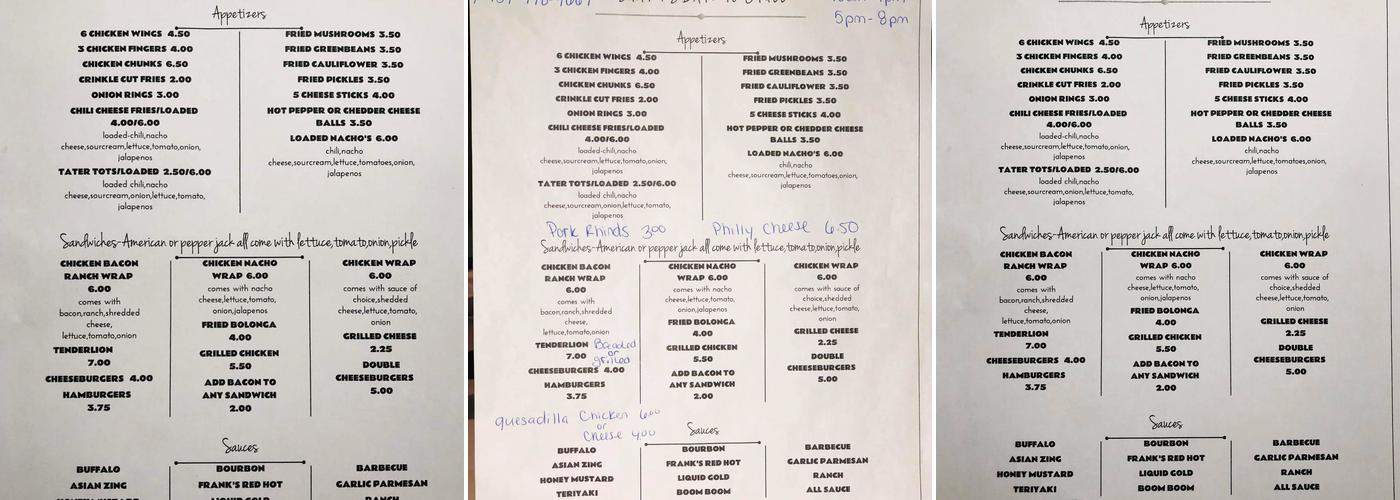 Appetizers
6 CHICKEN WINGS 4.50
3 CHICKEN FINGERS 4.00
CHICKEN CHUNKS 6.50
CRINKLE CUT FRIES 2.00
ONION RINGS 3.00
CHILI CHEESE FRIES/LOADED
4.00/6.00
loaded-chili,nacho
cheese,sourcream,lettuce,tomato,onion,
jalapenos
TATER TOTS/LOADED 2.50/6.00
loaded chili,nacho
cheese,sourcream,onion,lettuce,tomato,
jalapenos
FRIED MUSHROOMS 3.50
FRIED GREENBEANS 3.50
FRIED CAULIFLOWER 3.50
FRIED PICKLES 3.50
5 CHEESE STICKS 4.00
HOT PEPPER OR CHEDDER CHEESE
BALLS 3.50
LOADED NACHO'S 6.00
chili,nacho
cheese,sourcream,lettuce,tomatoes,onion,
jalapenos
Sandwiches-American or pepper jack all come with lettuce,tomato,onion,pickle
CHICKEN BACON
RANCH WRAP
6.00
comes with
bacon,ranch,shredded
cheese,
lettuce,tomato,onion
TENDERLION
7.00
CHEESEBURGERS 4.00
HAMBURGERS
3.75
CHICKEN NACHO
WRAP 6.00
comes with nacho
cheese,lettuce,tomato,
onion,jalapenos
FRIED BOLONGA
4.00
GRILLED CHICKEN
5.50
ADD BACON TO
ANY SANDWICH
2.00
CHICKEN WRAP
6.00
comes with sauce of
choice,shedded
cheese,lettuce,tomato,
onion
GRILLED CHEESE
2.25
DOUBLE
CHEESEBURGERS
5.00
Sauces
BUFFALO
ASIAN ZING
BOURBON
FRANK'S RED HOT
BARBECUE
GARLIC PARMESAN
5pm-8pm
Appetizers
6 CHICKEN WINGS 4.50
3 CHICKEN FINGERS 4.00
CHICKEN CHUNKS 6.50
CRINKLE CUT FRIES 2.00
ONION RINGS 3.00
CHILI CHEESE FRIES/LOADED
4.00/6.00
loaded-chili,nacho
cheese,sourcream,lettuce,tomato,onion,
jalapenos
TATER TOTS/LOADED 2.50/6.00
loaded chili,nacho
cheese,sourcream,onion,lettuce,tomato,
jalapenos
FRIED MUSHROOMS 3.50
FRIED GREENBEANS 3.50
FRIED CAULIFLOWER 3.50
FRIED PICKLES 3.50
5 CHEESE STICKS 4.00
HOT PEPPER OR CHEDDER CHEESE
BALLS 3.50
LOADED NACHO'S 6.00
chili,nacho
cheese,sourcream,lettuce,tomatoes,onion,
jalapenos
Pork Rhinds 3.00
Philly Cheese 6.50
Sandwiches-American or pepper jack all come with lettuce,tomato,onion,pickle
CHICKEN BACON
RANCH WRAP
6.00
comes with
bacon,ranch,shredded
cheese,
lettuce,tomato,onion
TENDERLION Breaded
7.00 or
grilled
CHEESEBURGERS 4.00
HAMBURGERS
3.75
CHICKEN NACHO
WRAP 6.00
comes with nacho
cheese,lettuce,tomato,
onion,jalapenos
FRIED BOLONGA
4.00
GRILLED CHICKEN
5.50
ADD BACON TO
ANY SANDWICH
2.00
CHICKEN WRAP
6.00
comes with sauce of
choice,shedded
cheese,lettuce,tomato,
onion
GRILLED CHEESE
2.25
DOUBLE
CHEESEBURGERS
5.00
quesadilla Chicken 6.00
or
Cheese 4.00
Sauces
BUFFALO
ASIAN ZING
HONEY MUSTARD
TERIYAKI
BOURBON
FRANK'S RED HOT
LIQUID GOLD
BOOM BOOM
BARBECUE
GARLIC PARMESAN
RANCH
ALL SAUCE
Appetizers
6 CHICKEN WINGS 4.50
3 CHICKEN FINGERS 4.00
CHICKEN CHUNKS 6.50
CRINKLE CUT FRIES 2.00
ONION RINGS 3.00
CHILI CHEESE FRIES/LOADED
4.00/6.00
loaded-chili,nacho
cheese,sourcream,lettuce,tomato,onion,
jalapenos
TATER TOTS/LOADED 2.50/6.00
loaded chili,nacho
cheese,sourcream,onion,lettuce,tomato,
jalapenos
FRIED MUSHROOMS 3.50
FRIED GREENBEANS 3.50
FRIED CAULIFLOWER 3.50
FRIED PICKLES 3.50
5 CHEESE STICKS 4.00
HOT PEPPER OR CHEDDER CHEESE
BALLS 3.50
LOADED NACHO'S 6.00
chili,nacho
cheese,sourcream,lettuce,tomatoes,onion,
jalapenos
Sandwiches-American or pepper jack all come with lettuce,tomato,onion,pickle
CHICKEN BACON
RANCH WRAP
6.00
comes with
bacon,ranch,shredded
cheese,
lettuce,tomato,onion
TENDERLION
7.00
CHEESEBURGERS 4.00
HAMBURGERS
3.75
CHICKEN NACHO
WRAP 6.00
comes with nacho
cheese,lettuce,tomato,
onion,jalapenos
FRIED BOLONGA
4.00
GRILLED CHICKEN
5.50
ADD BACON TO
ANY SANDWICH
2.00
CHICKEN WRAP
6.00
comes with sauce of
choice,shedded
cheese,lettuce,tomato,
onion
GRILLED CHEESE
2.25
DOUBLE
CHEESEBURGERS
5.00
Sauces
BUFFALO
ASIAN ZING
HONEY MUSTARD
TERIYAKI
BOURBON
FRANK'S RED HOT
LIQUID GOLD
BOOM BOOM
BARBECUE
GARLIC PARMESAN
RANCH
ALL SAUCE